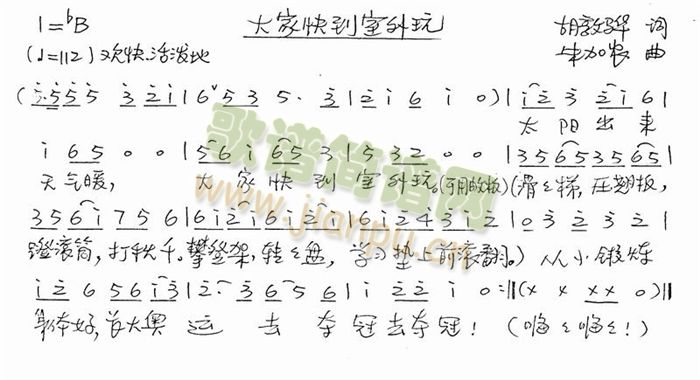 1=♭B 大家快到室外玩 胡敦骅 词
(♩=112) 欢快活泼地 曲
(i·555 3 2 i | 6ˇ5 3 5· 3 | 2 i 6 i 0) | i 2 3 2 i 6 |
太 阳 出 来
i 6 5 0 0 | 5 6 i 6 5 3 | 5 3 2 0 0 | 3 5 6 5 3 5 6 5 |
天气暖, 大 家 快 到 室外玩 (滑滑梯, 压翘板,
3 5 6 i 7 5 6 | 6 i 2 i 6 i 2 i | 6 i 2 4 3 i 2 | 0 3 2 3 2 |
蹬滚筒, 打秋千。攀登架, 转转盘, 学习垫上前滚翻。) 从小锻炼
i 2 6 5 6 i 3 | 2· 3 6 5 6 | i 2 2 i 0 :‖ (x x x x 0) ‖
身体好, 长大奥 运 去 夺冠去夺冠! (嗨嗨嗨嗨!)
歌谱简谱网
www.jianpu.cn